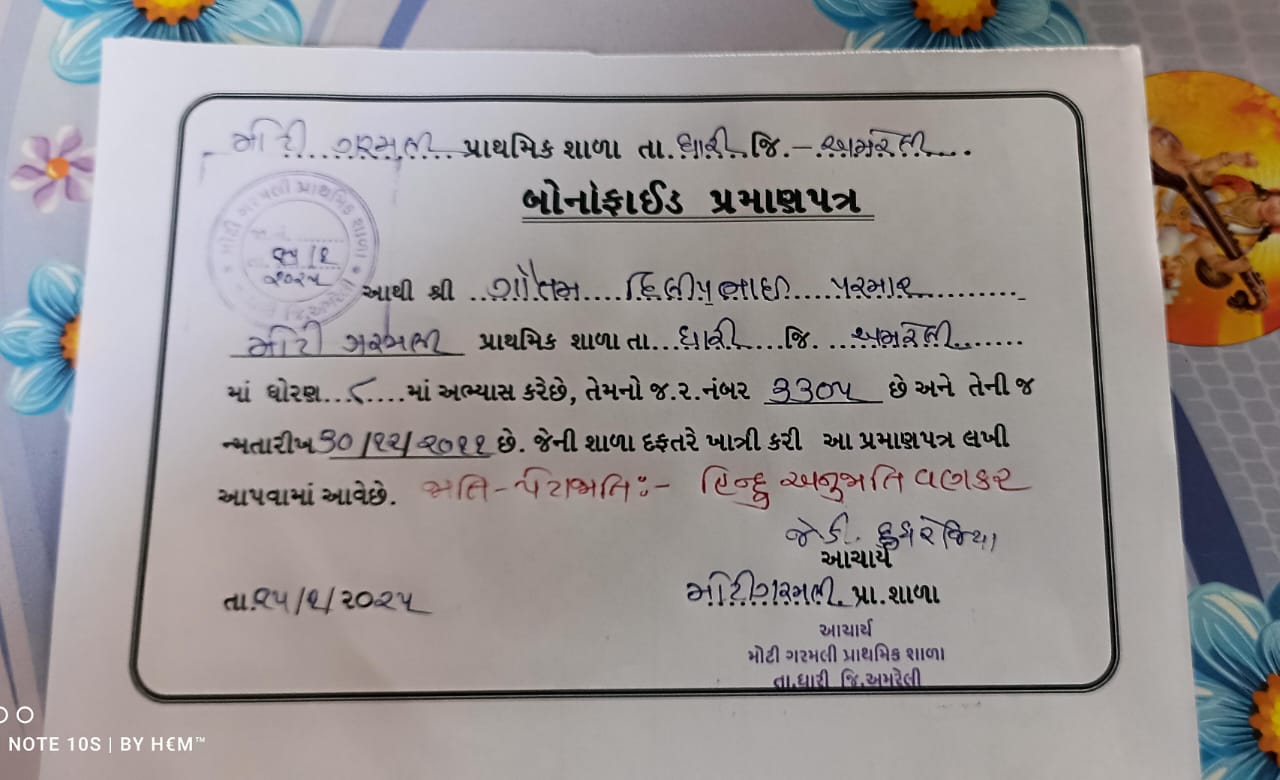 મોટી ગરમલી પ્રાથમિક શાળા તા. ધારી જિ.- અમરેલી.
બોનોફાઈડ પ્રમાણપત્ર
મોટી ગરમલી પ્રાથમિક શાળા
૧૫/૧
૨૦૨૫
જિ.અમરેલી
આથી શ્રી ..ગૌતમ....દિલીપભાઈ.....પરમાર............
મોટી ગરમલી પ્રાથમિક શાળા તા...ધારી....જિ. ..અમરેલી.......
માં ધોરણ...૮....માં અભ્યાસ કરેછે, તેમનો જ.ર.નંબર ૩૩૦૫ છે અને તેની જ
ન્મતારીખ ૩૦/૧૨/૨૦૧૧ છે. જેની શાળા દફતરે ખાત્રી કરી આ પ્રમાણપત્ર લખી
આપવામાં આવેછે. જાતિ-પેટાજાતિઃ- હિન્દુ અનુજાતિ વણકર
જે.ડી.
આચાર્ય
તા.૧૫/૧/૨૦૨૫ મોટીગરમલી. પ્રા.શાળા
આચાર્ય
મોટી ગરમલી પ્રાથમિક શાળા
તા.ધારી જિ.અમરેલી
NOTE 10S | BY H€M™